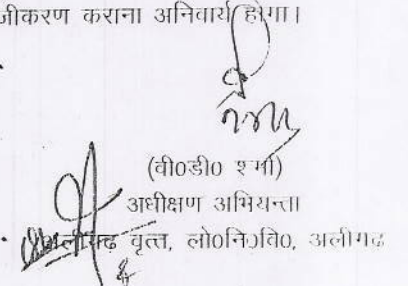 जीकरण कराना अनिवार्य होगा।
(वी०डी० शर्मा)
अधीक्षण अभियन्ता
अलीगढ़ वृत्त, लो०नि०वि०, अलीगढ़